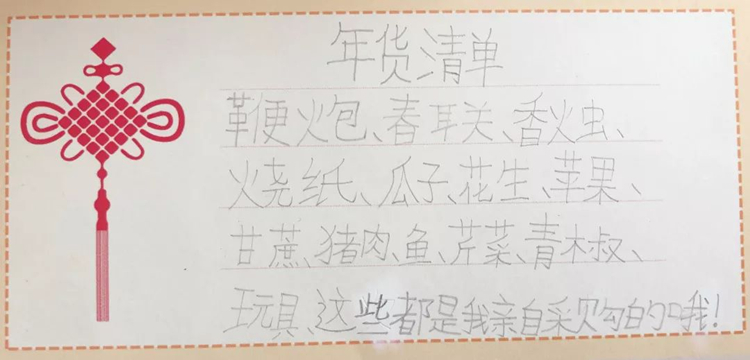 年货清单
鞭炮、春联、香烛、
烧纸、瓜子、花生、苹果、
甘蔗、猪肉、鱼、芹菜、青椒、
玩具、这些都是我亲自采购的哦!